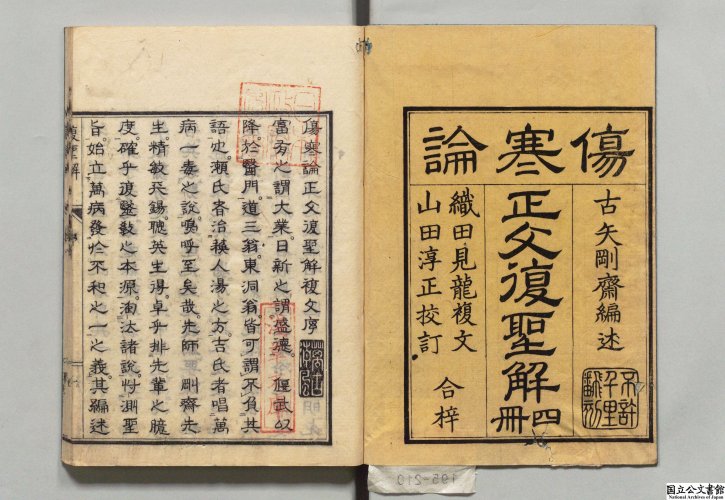 傷寒論
古矢剛齋編述
正文復聖解四冊
織田見龍複文
山田淳正挍訂
合梓
不許
翻刻
傷寒論正文復聖解複文序
富有之謂大業。日新之謂盛德。偃武以
降。於醫門。道三翁。東洞翁。皆可謂不負其
語也。
病一毒之說。嗚呼至矣哉。先師剛齊先
生。精敏 英生得。卓乎排先輩之臆
度。確乎復聖教之本源。淘汰諸說。 測聖
旨。始立萬病發於不和之一之義。其編述
復聖解
195-210
国立公文書館
National Archives of Japan